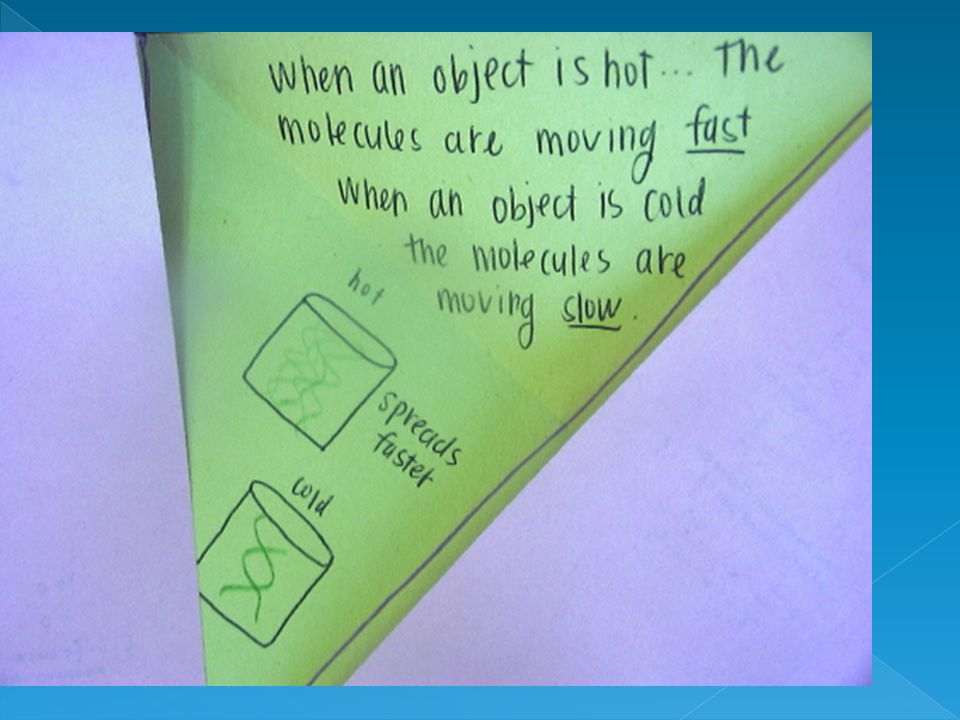 When an object is hot... The
molecules are moving fast
When an object is cold
the molecules are
moving slow.
hot
spreads
faster
cold